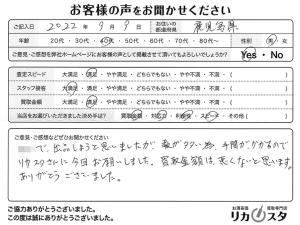 お客様の声をお聞かせください
ご記入日 2022年 9月 9日 お住いの都道府県 鹿児島県
年齢 20代・30代・40代・50代・60代・70代・80代〜 性別 男・女
ご意見・ご感想を弊社ホームページにお客様の声として掲載させて頂いてもよろしいでしょうか? Yes・No
査定スピード 大満足・満足・やや満足・どちらでもない・やや不満・不満・( )
スタッフ接客 大満足・満足・やや満足・どちらでもない・やや不満・不満・( )
買取金額 大満足・満足・やや満足・どちらでもない・やや不満・不満・( )
当店をお選びいただきました決め手は? 買取金額・対応力・利便性・スピード・その他( )
ご意見・ご感想などぜひお聞かせください
で、出品しようと思いましたが 数が多い為、手間がかかるので
リカスタさんに今回お願いしました。買取金額は悪くないと思います。
ありがとうございました。
ご協力ありがとうございました。
この度は誠にありがとうございました。
お酒高価買取専門店
リカスタ